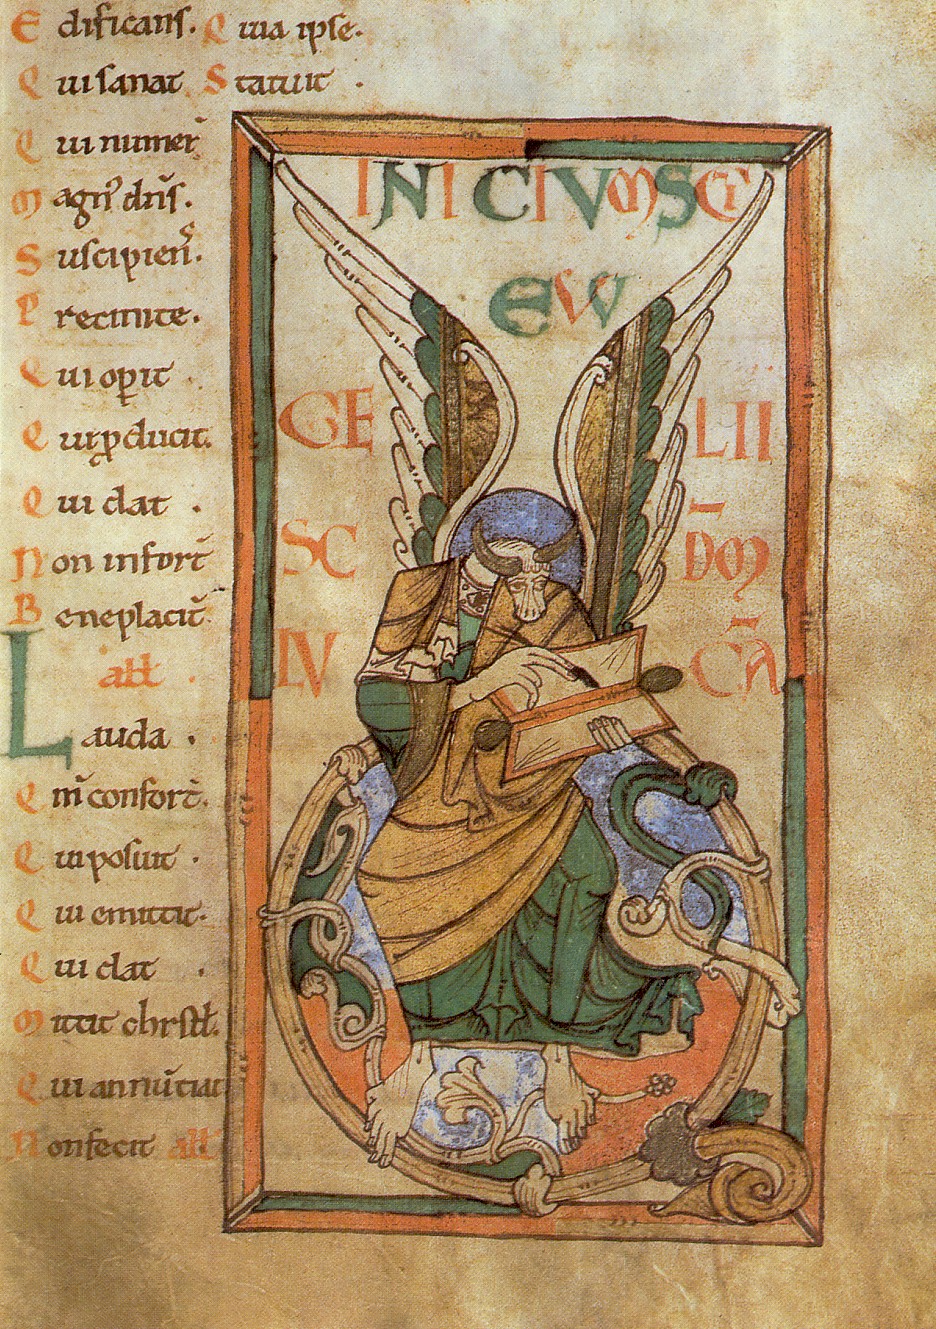 Edificans. Quia ipse.
Qui sanat Statuit.
Qui numer̄
Magn᾽ dn̄s.
Suscipiens.
Precinite.
Qui op̲it
Qui p̲ducit.
Qui dat.
Non in fort̄
Beneplacitū.
all̄.
Lauda.
Qm̄ confort̄.
Qui posuit.
Qui emittit.
Qui dat.
Mittit
Qui annūciat
Non fecit all̄
INICIVM SCI
EVV
GE LII
SC̄ D̄M
LV C̄A